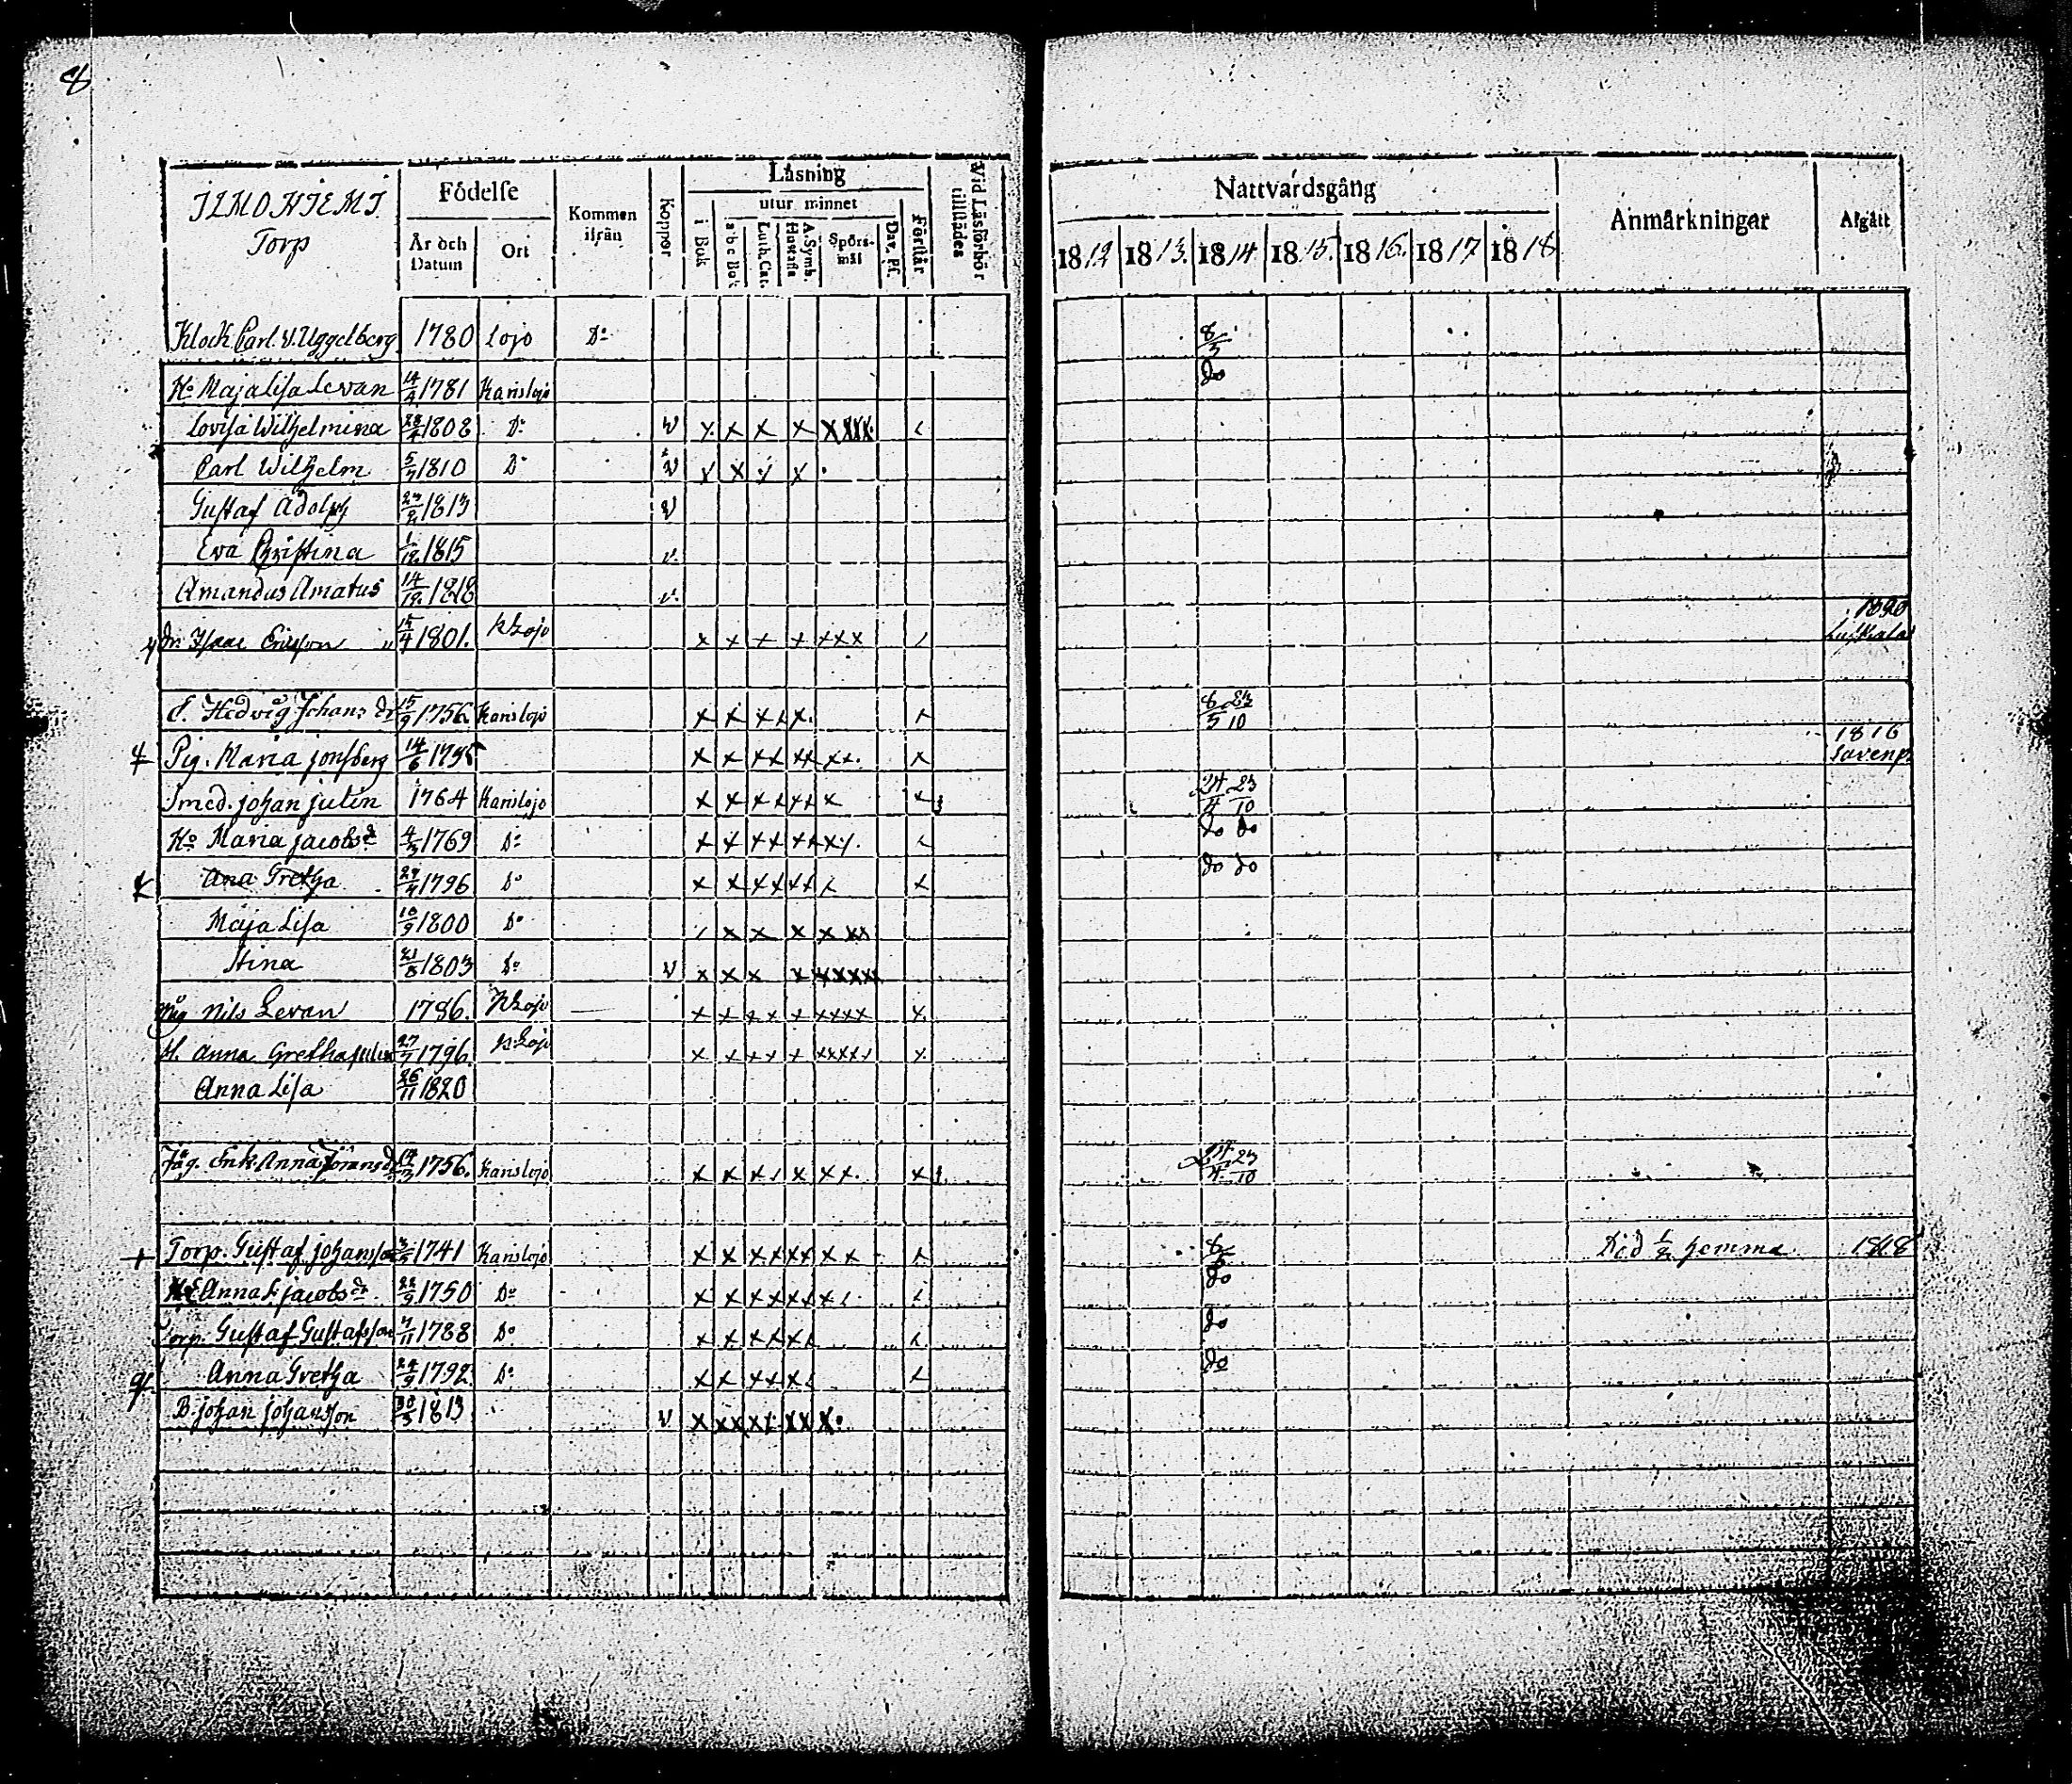 8
ILMONIEMI.
Torp
Födelse
År och Datum
Ort
Kommen ifrån
Koppor
Läsning
i Bok
utur minnet
a b c Bok
Luth. Cat.
A. Symb. Hustafla
Spörsmål
Dav. Ps.
Förstår
Vid Läsförhör tillstädes
Nattvardsgång
1812 1813. 1814 1815. 1816. 1817 1818
Anmärkningar
Afgått
Klock. Carl. V. Uggelberg 1780 Lojo Do 8/5
Ho Maja Lisa Levan 14/4 1781 Karislojo do
Lovisa Wilhelmina 28/4 1808 Do v x x x x xxxx
Carl Wilhelm 5/7 1810 Do v x x x x
Gustaf Adolph 1813 v
Eva Christina 1/12 1815 v.
Amandus Amatus 14/12 1818 v.
dr. Isaac Ericsson 15/4 1801. K Lojo x x x x xxx 1820
E. Hedvig Johans dr 15/9 1756 Karislojo x x x x x. 8/5 23/10
Pig. Maria Jonsberg 14/6 1795 x x xx xx xx. x 1816
Smed. Johan Julin 1764 Karislojo x x xx xx x x 24/4 23/10
Ho Maria Jacobs dr 4/3 1769 Do x x xx xx x do do
Ana Gretha 27/7 1796 Do x x xx xx x x do do
Maja Lisa 10/9 1800 Do x x x x xx
Stina 21/8 1803 Do v x x x x xxxx
Nils Levan 1786. K Lojo x x xx x xxxx x.
H. Anna Gretha Julin 27/7 1796 K. Lojo x x xx x xxxxx x
Anna Lisa 26/11 1820
Enk. Anna Jörans dr 1756. Karislojo x x x x xx. x 24/4 23/10
+ Torp. Gustaf Johansson 1741 Karislojo x x xx xx x x x 8/5 Död 1/2 hemma 1818
Anna L Jacobs dr 22/9 1750 Do x x xx xx x do
Torp. Gustaf Gustafsson 7/11 1788 Do x x xx xx do
Anna Gretha 24/9 1792 Do x x xx x x do
B. Johan Johansson 30/5 1813 v x xx xx xx x.